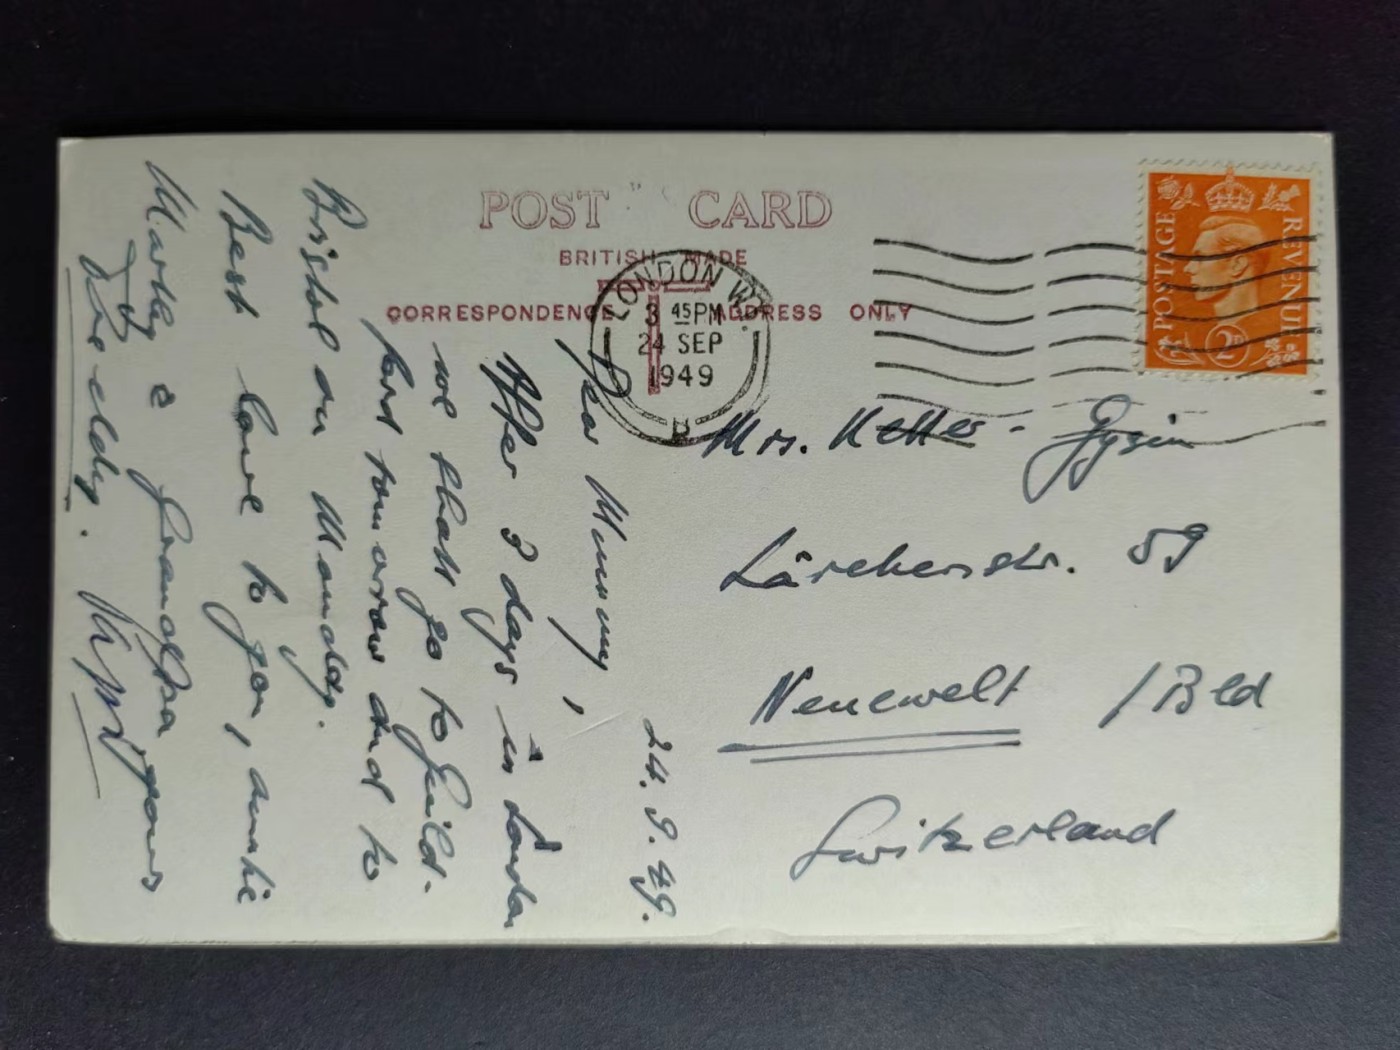 POST CARD
BRITISH MADE
CORRESPONDENCE ADDRESS ONLY
LONDON W.
3 45PM
24 SEP
1949
POSTAGE REVENUE
2D
24. 9. 49.
Dear Mummy,
After 3 days in London
we shall go to Guild-
ford tomorrow and to
Bristol on Monday.
Best love to you, auntie
Marly & Grandpa yours
Freddy.
Mrs. Keller - Gysin
Lärchenstr. 59
Neuewelt / Bld
Switzerland